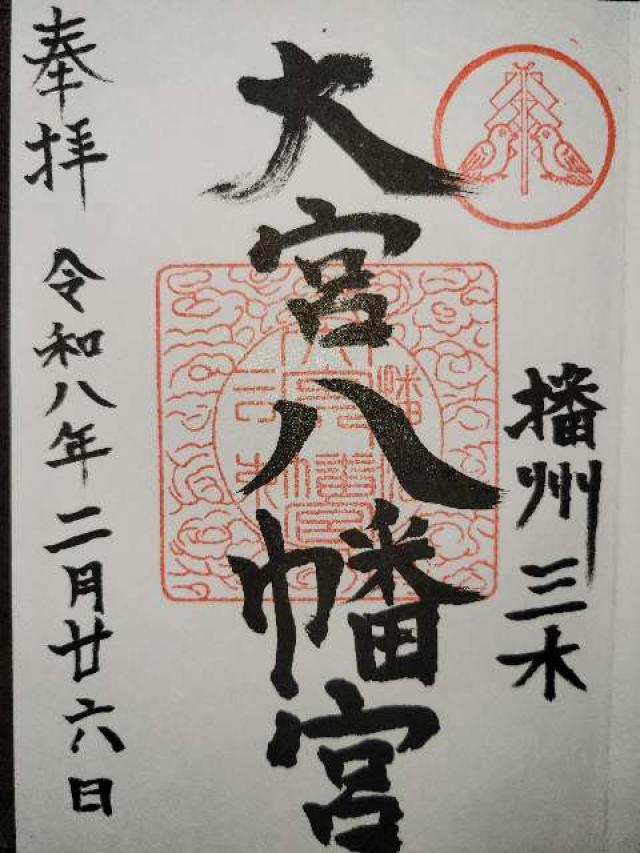 播州三木
大宮八幡宮
奉拝
令和八年二月廿六日